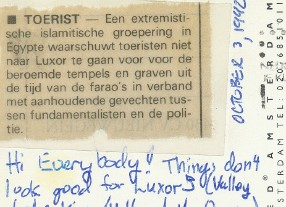 ■ TOERIST — Een extremisti-
sche islamitische groepering in
Egypte waarschuwt toeristen niet
naar Luxor te gaan voor voor de
beroemde tempels en graven uit
de tijd van de farao's in verband
met aanhoudende gevechten tus-
sen fundamentalisten en de poli-
tie.
OCTOBER 3, 1992
Hi Everybody! Things don't
look good for Luxor & (Valley